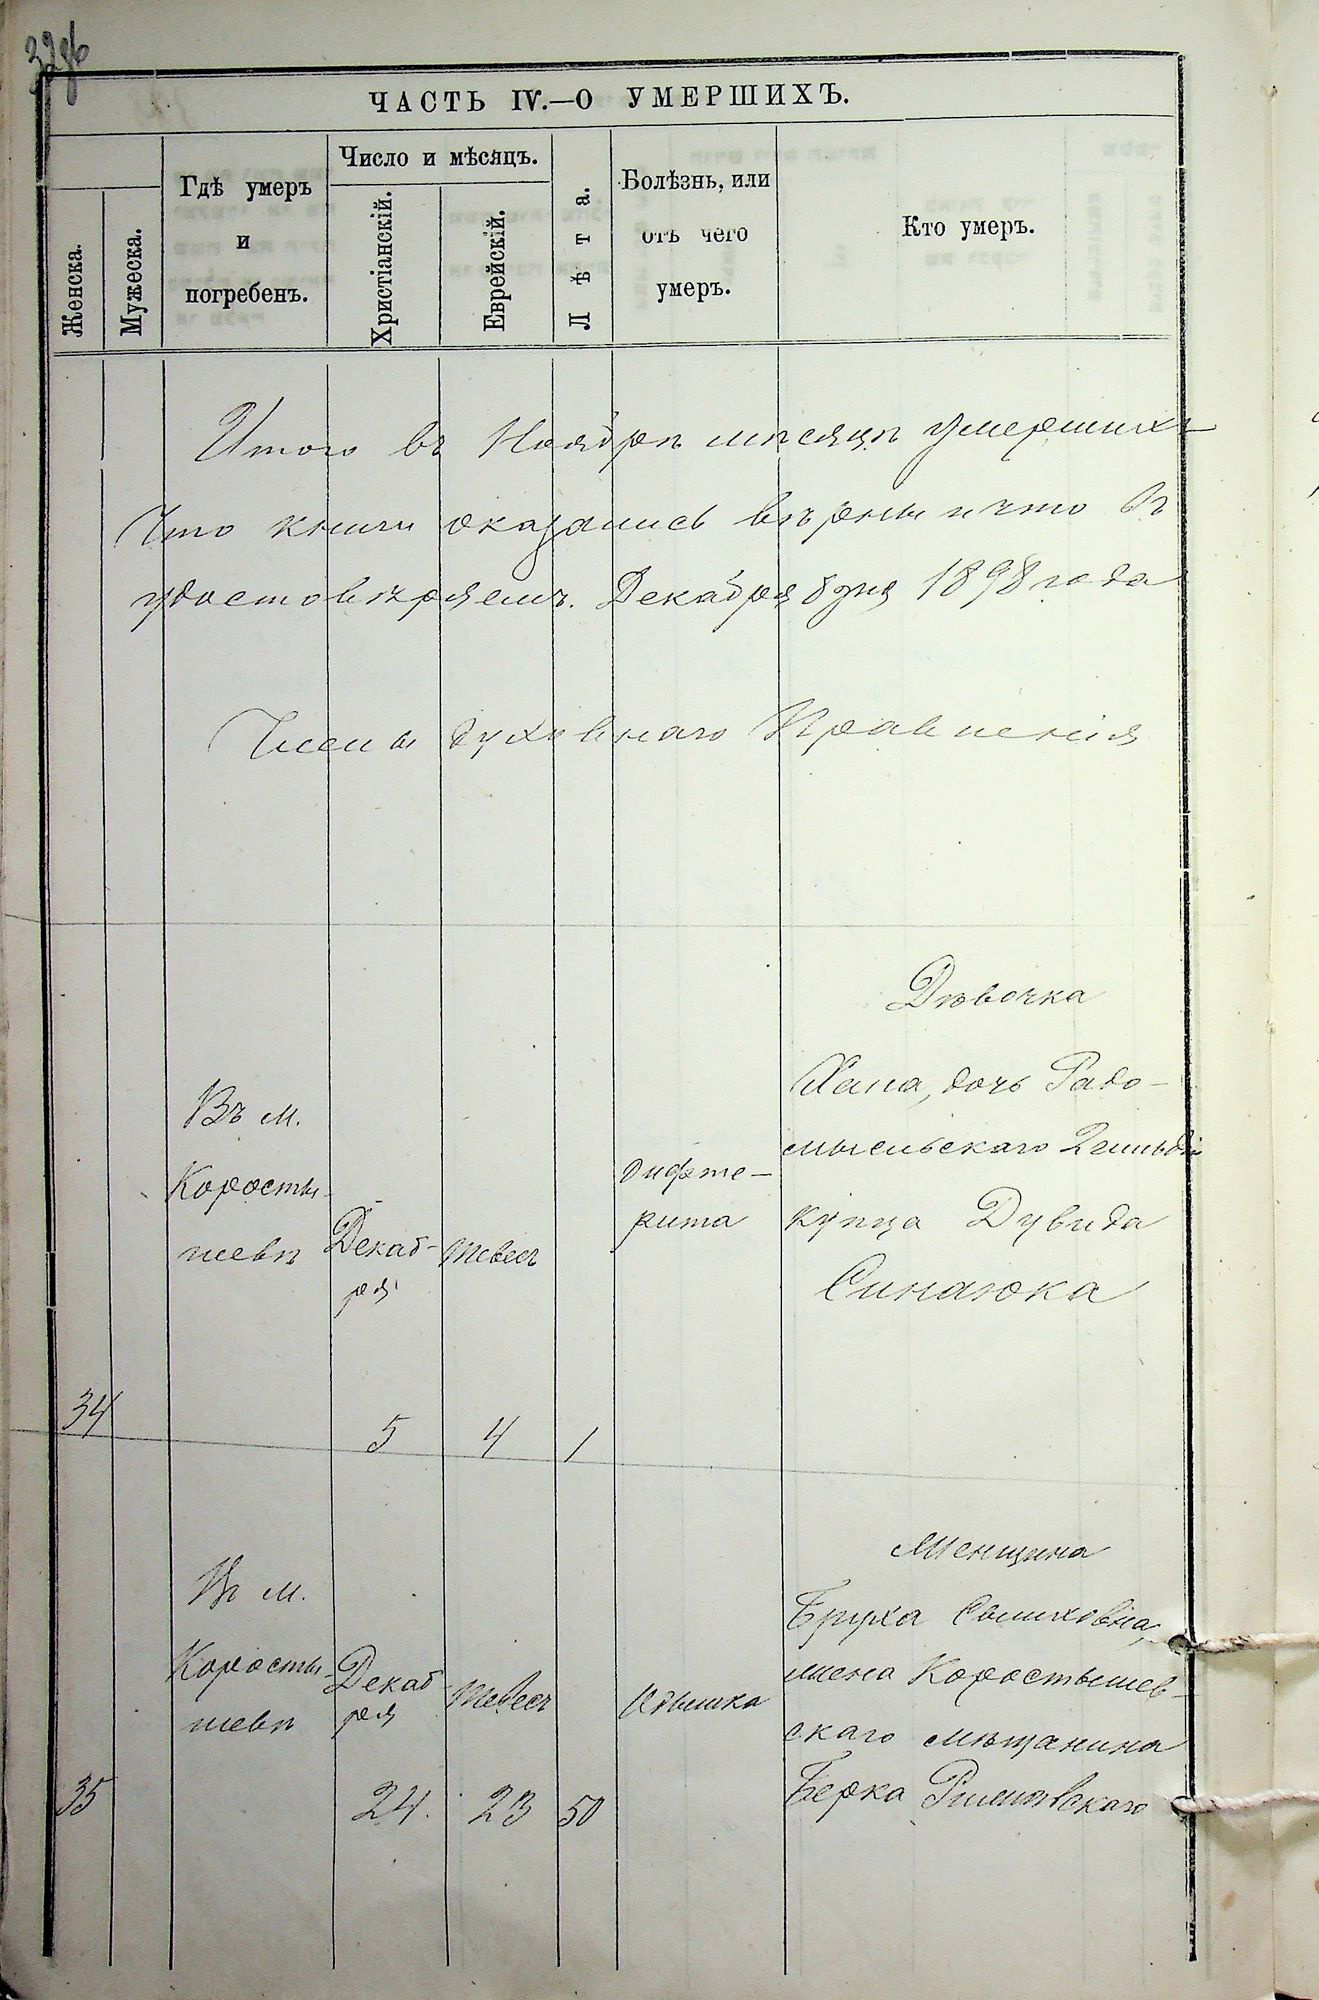 ЧАСТЬ IV.—О УМЕРШИХЪ.
Женска.
Мужеска.
Гдѣ умеръ
и
погребенъ.
Число и мѣсяцъ.
Христіанскій.
Еврейскій.
Лѣта.
Болѣзнь, или
отъ чего
умеръ.
Кто умеръ.
Итого въ Ноябрѣ мѣсяцѣ умершихъ
Что книги оказались вѣрны и что
удостовѣряемъ. Декабря 8 дня 1898 года
Члены духовнаго Правленія
34
Въ м.
Коросты-
шевѣ
Декаб-
ря
5
Тевесъ
4
1
дифте-
рита
Дѣвочка
Хана, дочь Радо-
мысльскаго 2 гильдіи
купца Дувида
Синаюка
35
Въ м.
Коросты-
шевѣ
Декаб-
ря
24.
Тевесъ
23
50
Одышка
Женщина
Бруха
жена Коростышев-
скаго мѣщанина
Берка